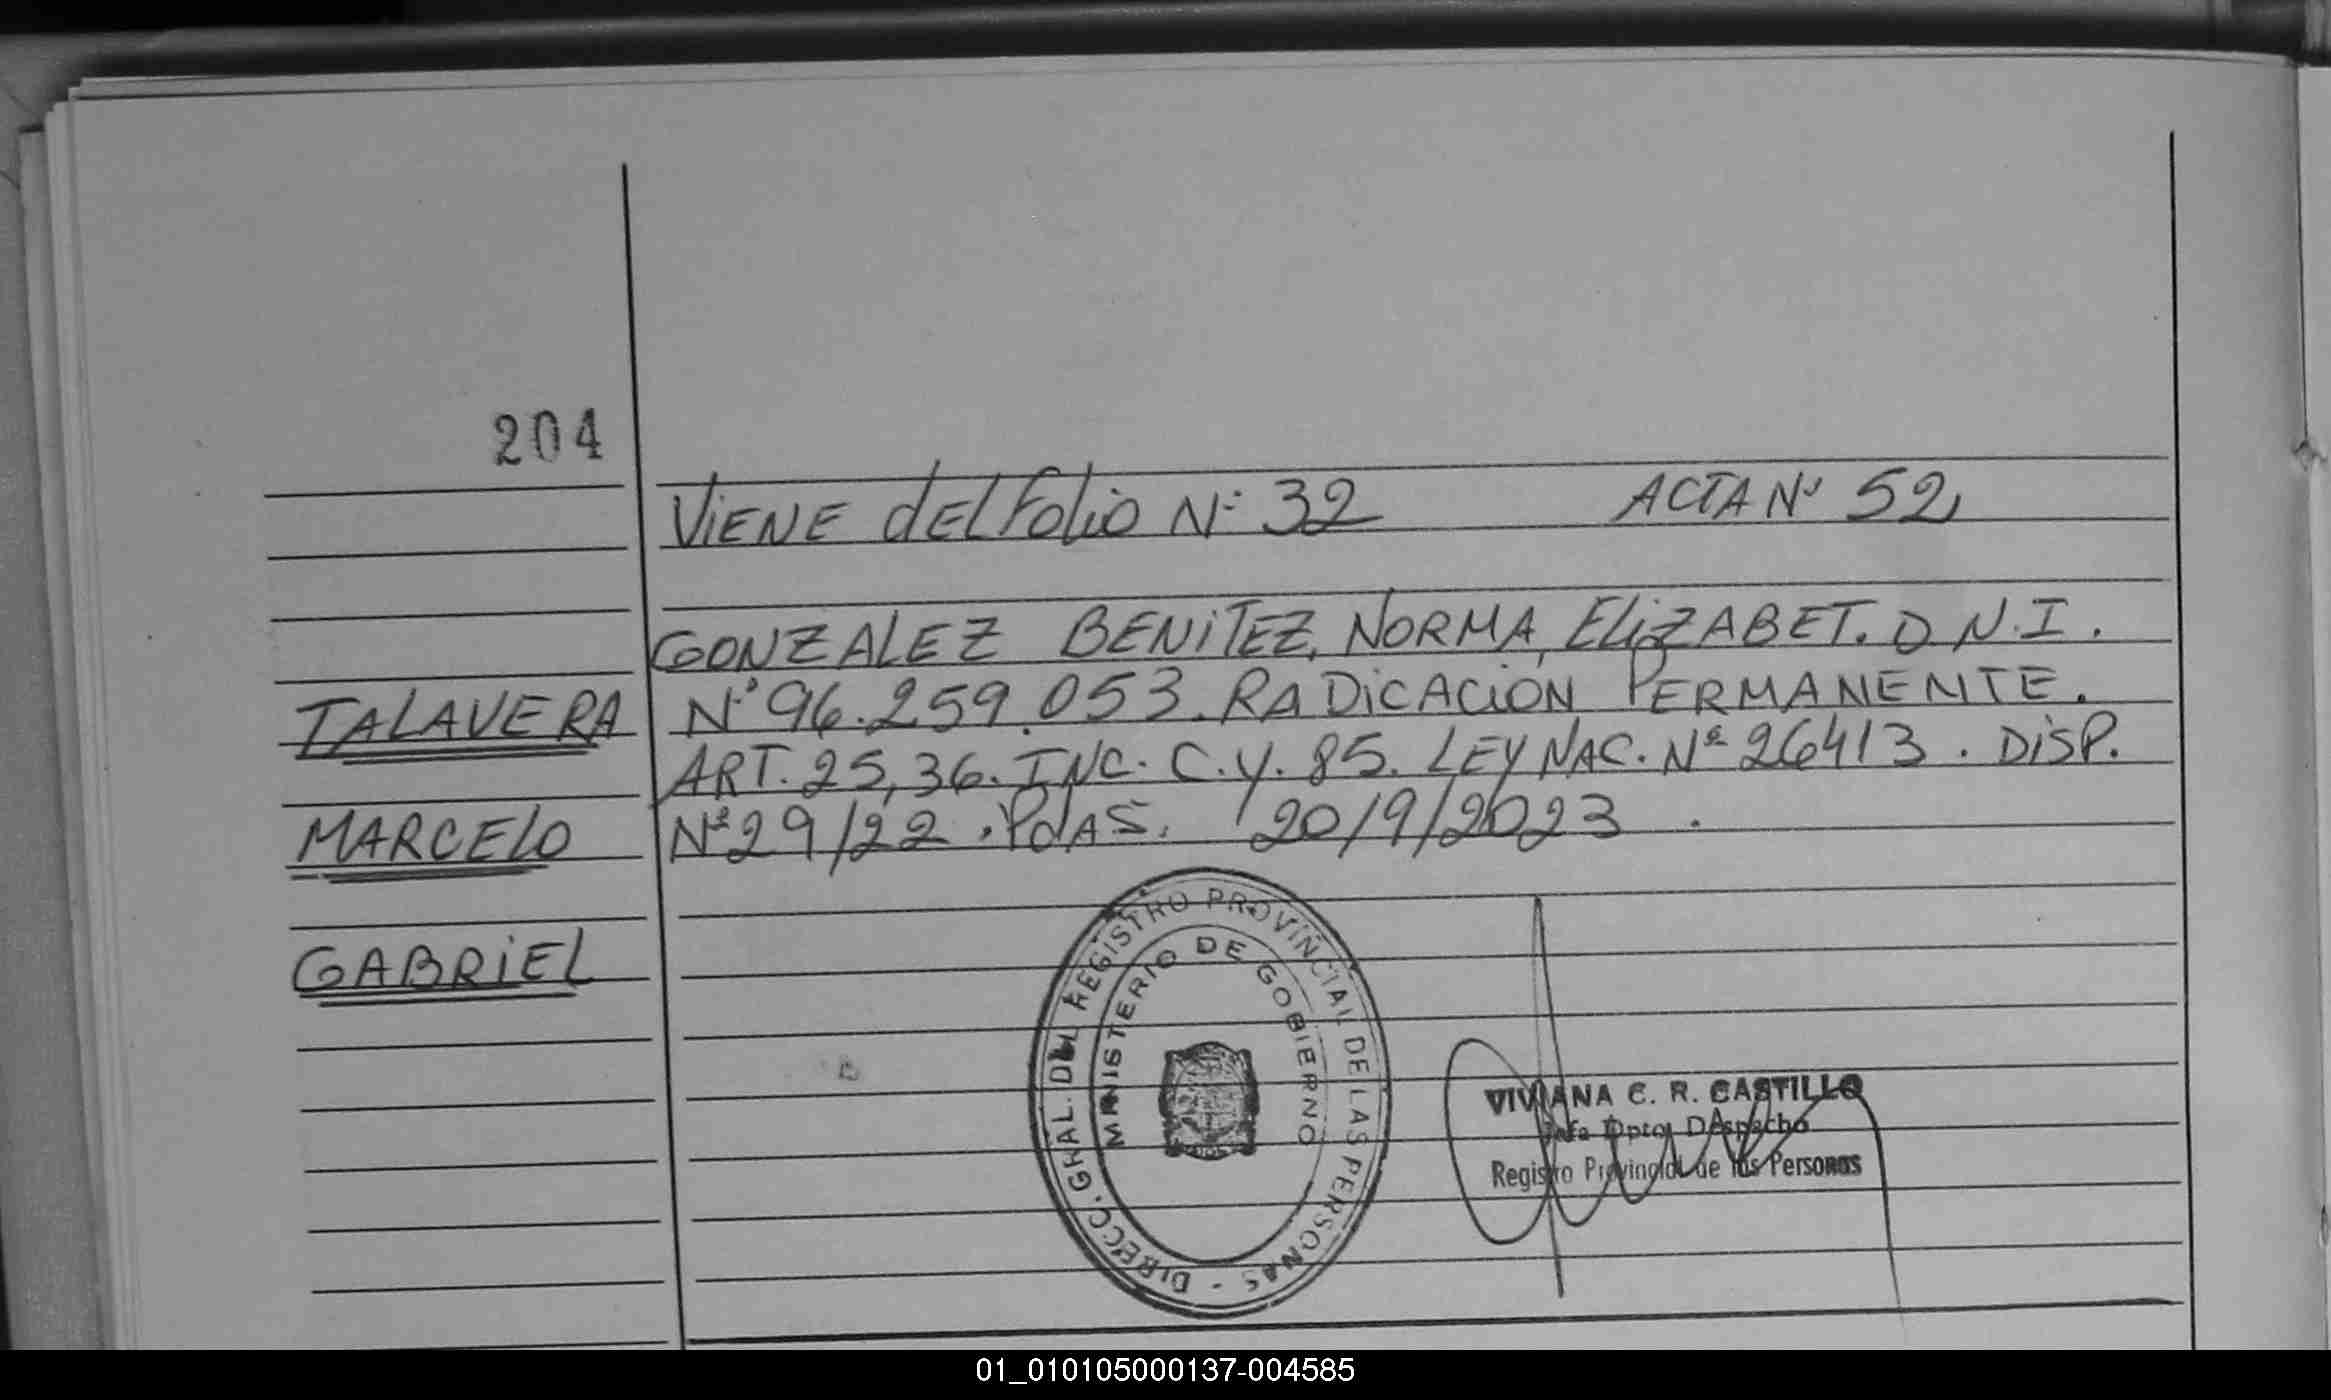 204
VIENE DEL FOLIO Nº 32 ACTA Nº 52
GONZALEZ BENITEZ, NORMA, ELIZABET. D N.I.
TALAVERA
Nº 96.259.053. RADICACION PERMANENTE.
ART. 25, 36. INC. C. Y. 85. LEY NAC. Nº 26413. DISP.
MARCELO
Nº 29/22. PdAS. 20/9/2023.
GABRIEL
DIRECC. GRAL. DEL REGISTRO PROVINCIAL DE LAS PERSONAS -
MINISTERIO DE GOBIERNO
VIVIANA C. R. CASTILLO
Jefa Dpto. Despacho
Registro Provincial de las Personas
01_010105000137-004585